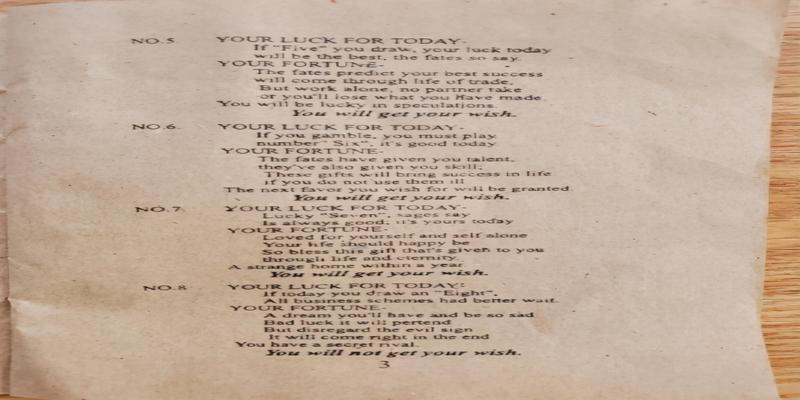 NO.5 YOUR LUCK FOR TODAY-
If "Five" you draw, your luck today
will be the best, the fates so say.
YOUR FORTUNE-
The fates predict your best success
will come through life of trade.
But work alone, no partner take
or you'll lose what you have made.
You will be lucky in speculations.
You will get your wish.
NO.6. YOUR LUCK FOR TODAY-
If you gamble, you must play
number "Six", it's good today
YOUR FORTUNE-
The fates have given you talent,
they've also given you skill;
These gifts will bring success in life
if you do not use them ill
The next favor you wish for will be granted.
You will get your wish.
NO.7 YOUR LUCK FOR TODAY-
Lucky "Seven", sages say
Is always good; it's yours today
YOUR FORTUNE-
Loved for yourself and self alone
Your life should happy be
So bless this gift that's given to you
through life and eternity.
A strange home within a year
You will get your wish.
NO.8 YOUR LUCK FOR TODAY:
If today you draw an "Eight",
All business schemes had better wait.
YOUR FORTUNE-
A dream you'll have and be so sad
Bad luck it will pertend
But disregard the evil sign
It will come right in the end
You have a secret rival.
You will not get your wish.
3